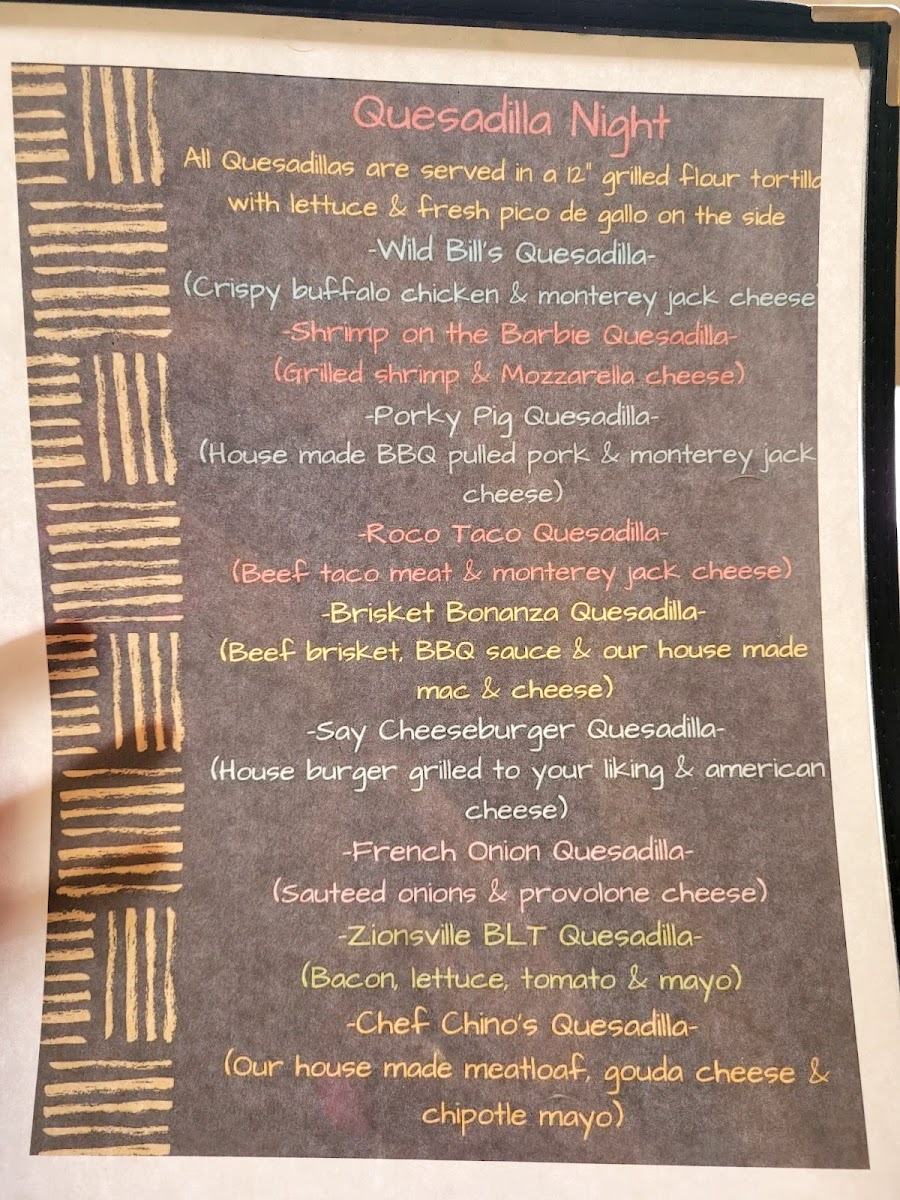 Quesadilla Night
All Quesadillas are served in a 12" grilled flour tortilla
with lettuce & fresh pico de gallo on the side
-Wild Bill's Quesadilla-
(Crispy buffalo chicken & monterey jack cheese
-Shrimp on the Barbie Quesadilla-
(Grilled shrimp & Mozzarella cheese)
-Porky Pig Quesadilla-
(House made BBQ pulled pork & monterey jack
cheese)
-Roco Taco Quesadilla-
(Beef taco meat & monterey jack cheese)
-Brisket Bonanza Quesadilla-
(Beef brisket, BBQ sauce & our house made
mac & cheese)
-Say Cheeseburger Quesadilla-
(House burger grilled to your liking & american
cheese)
-French Onion Quesadilla-
(Sauteed onions & provolone cheese)
-Zionsville BLT Quesadilla-
(Bacon, lettuce, tomato & mayo)
-Chef Chino's Quesadilla-
(Our house made meatloaf, gouda cheese &
chipotle mayo)